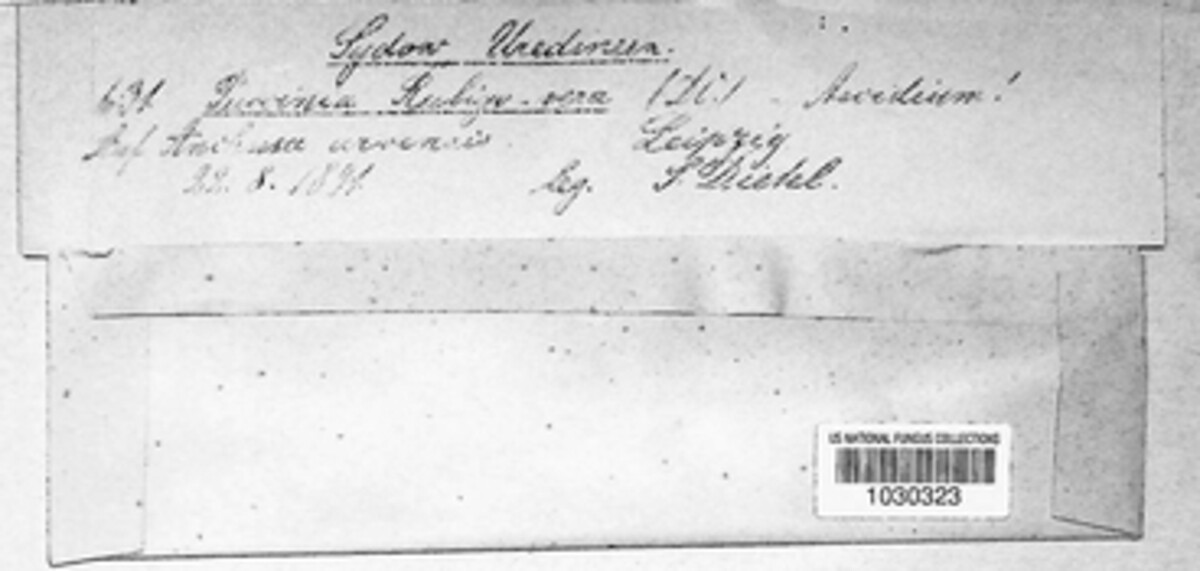 Sydow Uredineen.
631. Puccinia Rubigo-vera (DC.) - Aecidium!
Auf Anchusa arvensis.
Leipzig
22. 8. 1891. leg. P. Dietel.
US NATIONAL FUNGUS COLLECTIONS
1030323